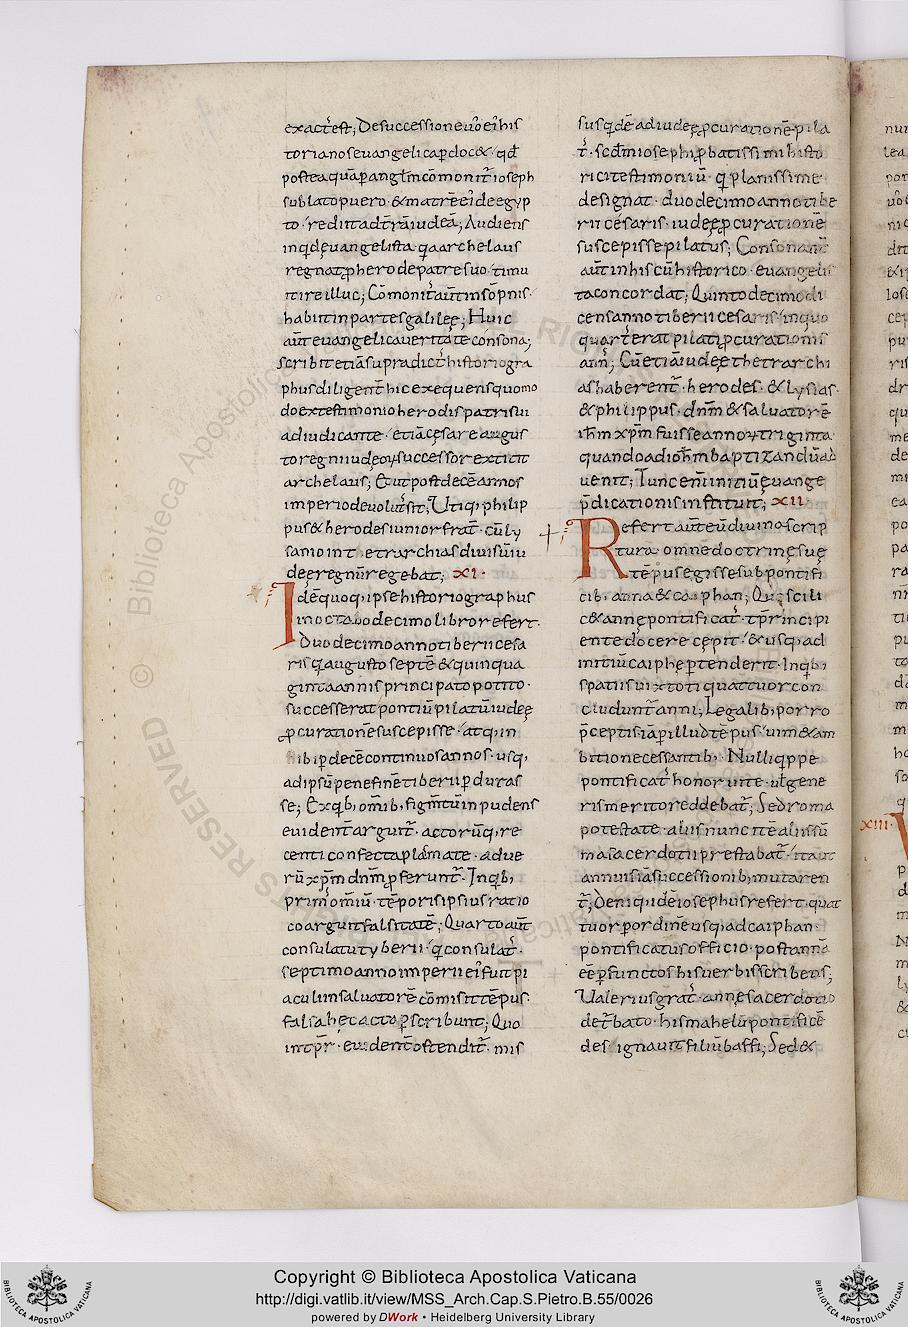 exact̄ est; De successione ũo eı̓ his
toriano sevangelica p̱ doc& · qd̄
postea qua p̱ anglm̄ cōmonit̄ ioseph
sublato puero · & matre ēi de egyp
to · rediit ad t̄ra iudeā; Audiens
inqd evangelista · qa archelaus
regnat p̱ herode patre suo timu
it ire illuc; Cōmonit̄ aut̄ in sōpnis ·
habiit in partes galileę; Huic
aūt evangelica veritate consona;
scribit etiā supradict̄ historiogra
phus diligent̄ hic exequens quomo
do ex testimonio herodis patris sui
adiudicante · etiā cęsare augus
to regni iudeoꝝ successor extitit
archelaus; & ut post decē annos
imperio devolut̄ sit; Utiq; philip
pus & herodes iunior frat̄ · cū ly
sanio in t etrarchias divisū iu
deę regnū regebat; XI ·
Idē quoq; ipse historiographus
in octabo decimo libro refert ·
Duodecimo anno tiberii cesa
ris q̱ augusto septē & quinqua
ginta annis principato potito ·
successerat pontiū pilatū iudeę
p̱curationē suscepisse · atq; in
ibi p̱ decē continuos annos · usq;
ad ipsū pene finē tiberii p̱duras
se; Ex qb; omib; figmtū inpudens
evident̄ arguit̄ · actorū q; re
centi confecta plāmate · adve
rū xp̄m dnm̄ p̱ferunt̄ · Inqb;
prim̄ omiū · tēporis ipsius ratio
coarguit falsitatē; Quarto aūt
consulatu tyberii · q consulat̄ ·
septimo anno imperii eı̓ fuit pi
aculi in salvatorē cōmisi tēpus
falsa hęc acto p̱scribunt; Quo
in tp̄r · evident̄ ostendit̄ · mis
sus qdē ad iudeę p̱curationē · pila
t̄ · scdm̄ ioseph p̱batissimi histo
rici testimoniū · q planissime
designat · duodecimo anno tibe
rii cesaris · iudeę p̱curationē
suscepisse pilatus; Consonant̄
aūt in his cū historico · evangelis
ta concordat; Quinto decimo di
cens anno tiberii cesaris · in quo
quart̄ erat pilati p̱curationis
ann̄; Cū etiā iudeę thetrarchi
as haberent̄ · herodes · & lysias ·
& philippus · dnm̄ & salvatorē
ihm̄ xp̄m fuisse annoꝝ triginta
quando ad ioh̄m baptizandū ad
venit; Tunc enī initiū evange
p̄dicationis instituit; XII
Refert aūt eū divino scrip
tura · omne doctrinę suę
tēpus egisse sub pontifi
cib; anna & caiphan; Qd; scili
c& annę pontificat̄ · tp̄r incipi
ente docere cepit · & usq; ad
initiū caiphę p̱tenderit · Inqbi
spatii sui xtoti quattuor con
cludunt̄ anni; Legalib; porro
p̄ceptis iā p̱ illud tēpus · uim & am
bitione cessantib; Nulli q̱ppe
pontificat̄ honor vite · ul̄ gene
ris merito reddebat̄; Sed roma
potestate · aliis nunc itē aliis sū
ma sacerdotii prestabat̄ · ita ut
annuis iā successionib; mutaren
t̄; Deniq; idē iosephus refert · quat
tuor p̱ ordinē usq; ad caiphan ·
pontificatus officio · post annā
eē p̱functos his verbis scribens;
Valerius grat̄ · annę sacerdotio
det̄bato · hismahelū pontificē
des ignavit filiū baffi; Sed &
XIII ·
Copyright © Biblioteca Apostolica Vaticana
http://digi.vatlib.it/view/MSS_Arch.Cap.S.Pietro.B.55/0026
powered by DWork • Heidelberg University Library